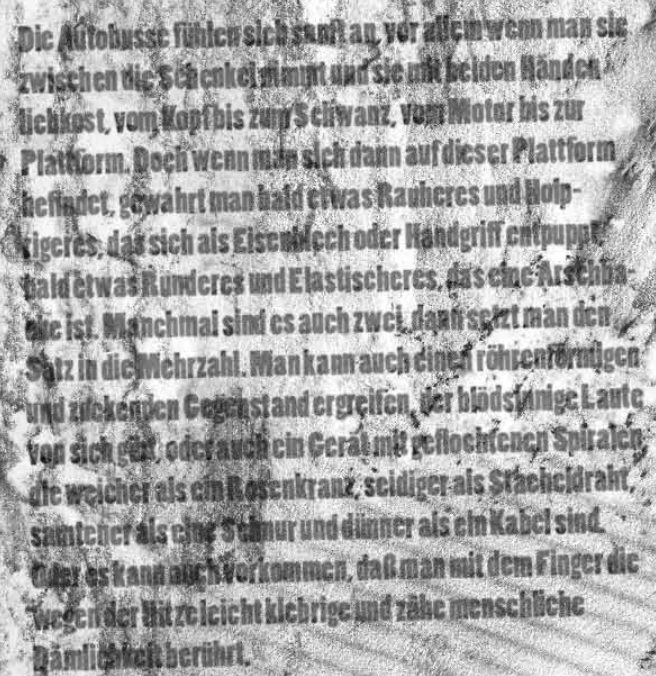 Die Autobusse fühlen sich sanft an, vor allem wenn man sie
zwischen die Schenkel nimmt und sie mit beiden Händen
liebkost, vom Kopf bis zum Schwanz, vom Motor bis zur
Plattform. Doch wenn man sich dann auf dieser Plattform
befindet, gewahrt man bald etwas Rauheres und Holp-
rigeres, das sich als Eisenblech oder Handgriff entpuppt,
bald etwas Runderes und Elastischeres, das eine Arschba-
cke ist. Manchmal sind es auch zwei, dann setzt man den
Satz in die Mehrzahl. Man kann auch einen röhrenförmigen
und zuckenden Gegenstand ergreifen, der blödsinnige Laute
von sich gibt, oder auch ein Gerät mit geflochtenen Spiralen,
die weicher als ein Rosenkranz, seidiger als Stacheldraht,
samtener als eine Schnur und dünner als ein Kabel sind.
Oder es kann auch vorkommen, daß man mit dem Finger die
wegen der Hitze leicht klebrige und zähe menschliche
Dämlichkeit berührt.